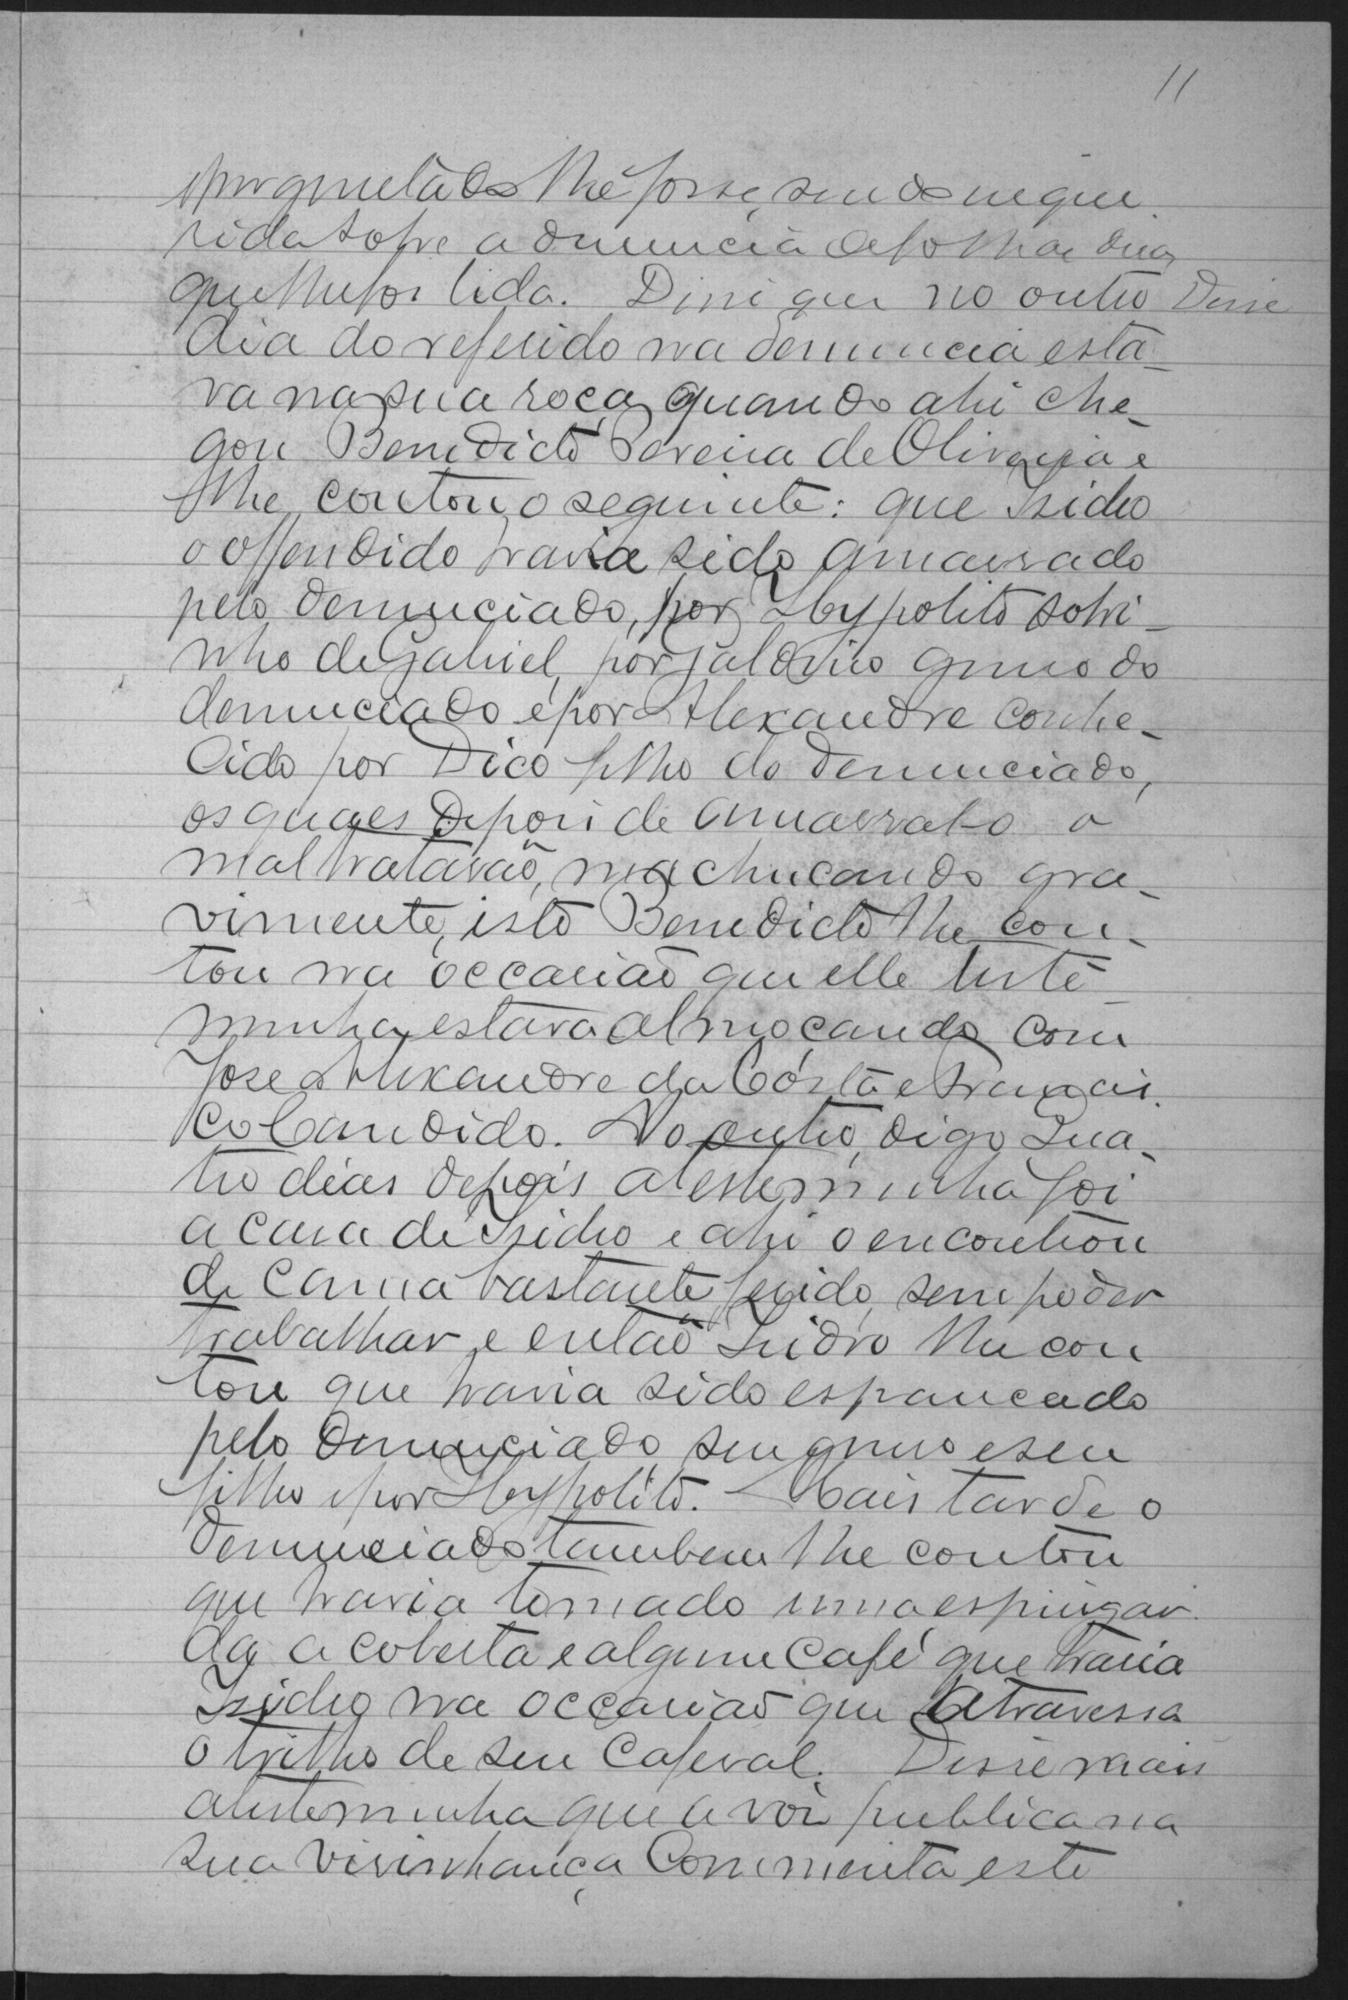 11
e perguntado lhe fosse, sendo inque
rida sobre a denuncia de folhas duas
que lhe foi lida. Disse que no outro Disse
dia do referido na denuncia esta-
va na sua roça, quando ahi che-
gou Benedicto Pereira de Oliveira e
lhe contou o seguinte: que Isidro
o offendido havia sido amarrado
pelo denunciado, por Hypolito sobri-
nho de Gabriel, por Jaldino genro do
denunciado e por Alexandre conhe-
cido por Dico filho do denunciado,
os quaes depois de amarral-o o
maltratarão, machucando gra-
vimente, isto Benedicto lhe con-
tou na occasião que elle teste-
munha estava almoçando com
Jose Alexandre da Costa e Francis-
co Candido. No outro, digo Qua-
tro dias depois a testemunha foi
a casa de Isidro e ahi o encontrou
de cama bastante ferido, sem poder
trabalhar e então Isidro lhe con
tou que havia sido espancado
pelo denunciado, seu genro e seu
filho e por Hypolito. Mais tarde o
denunciado tambem lhe contou
que havia tomado uma espingar-
da a coberta e algum café que trazia
Isidro na occasião que atravessa
o trilho de seu cafesal. Disse mais
a testemunha que a voz publica na
sua visinhança commenta este